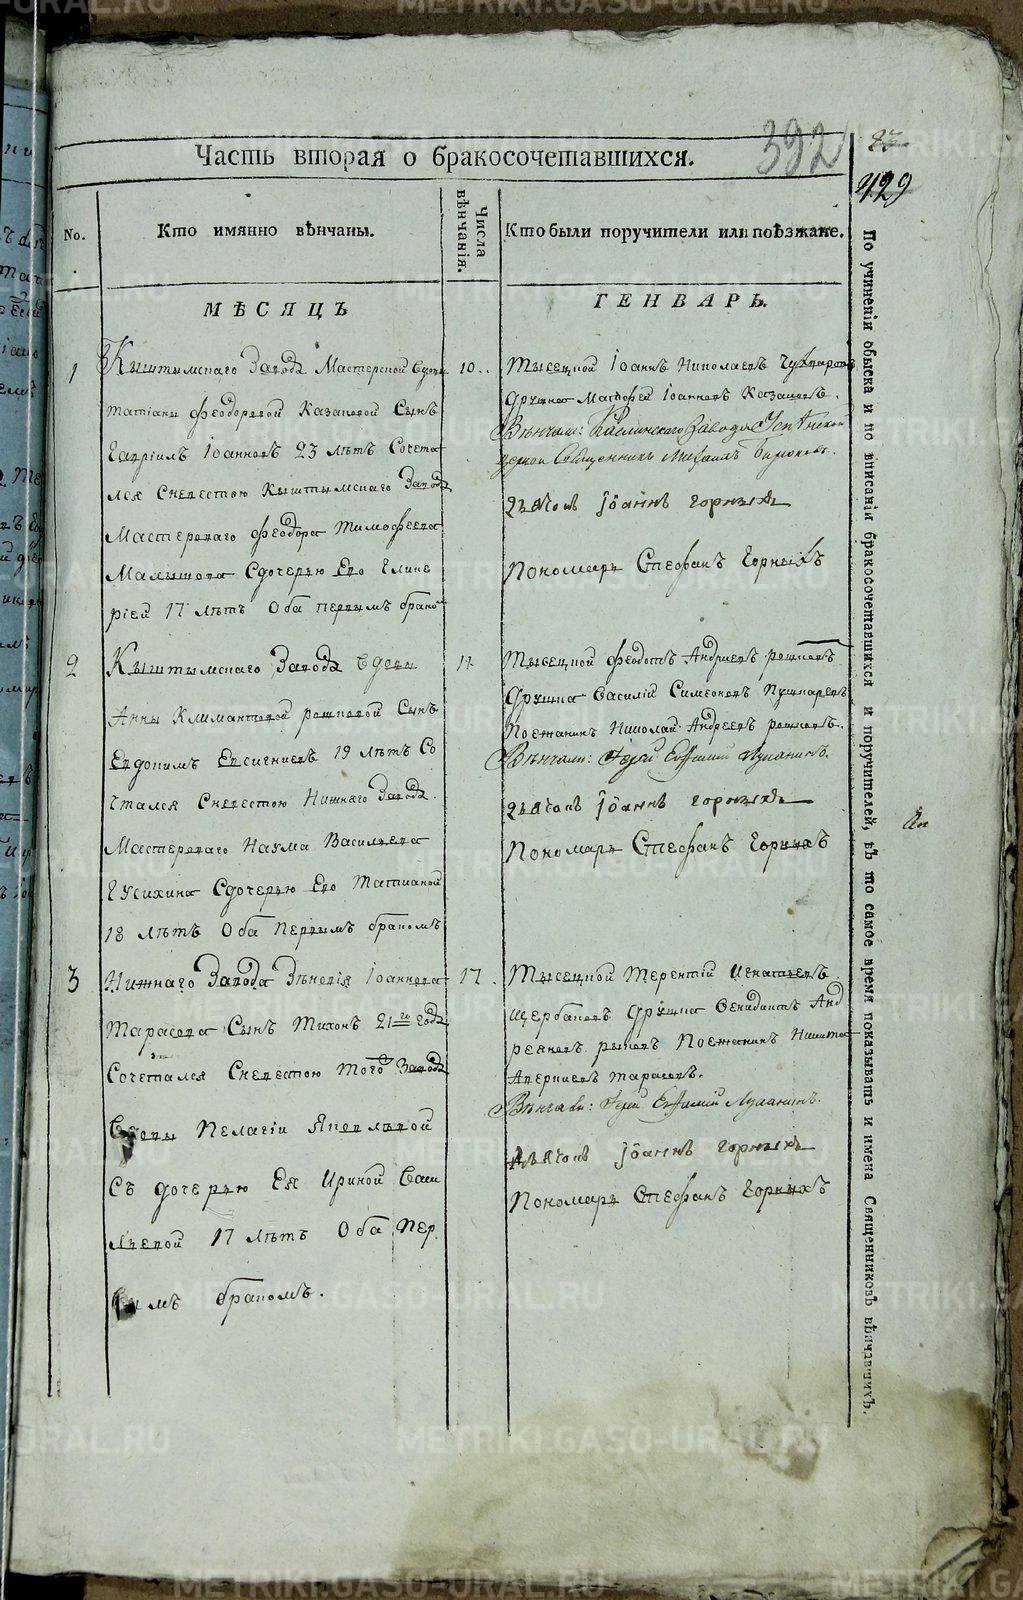 Часть вторая о бракосочетавшихся.
392
27
429
No.
Кто имянно вѣнчаны.
Числа вѣнчанія.
Кто были поручители или поѣзжане.
МѢСЯЦЪ
ГЕНВАРЬ.
1
Кыштымскаго Завода Мастерской вдовы
татіаны Феодоровой Казаковой Сынъ
Гавріилъ Іоанновъ 23 лѣтъ Сочета
лся Сневестою Кыштымскаго Завода
Мастероваго Феодора Тимофеева
Малышова Сдочерью Его Глике
ріей 17 лѣтъ Оба первымъ брако
10.
Тысецкой Іоаннъ Николаевъ
Дружка Матфей Іоанновъ Казаковъ.
Вѣнчали: Каслинскаго Завода Успенской
церкви Священникъ Михаилъ Бирюковъ.
Дьячокъ Іоаннъ горныхъ
Пономарь Стефанъ Горныхъ
2
Кыштымскаго Завода вдовы
Анны Климантовой рошковой Сынъ
Евдокимъ Евсигниевъ 19 лѣтъ Со
чтался Сневестою Нижнаго Завода
Мастероваго Наума Васильева
Гусихина Сдочерью Его Татианой
18 лѣтъ Оба Первымъ бракомъ
11.
Тысецкой Феодотъ Андриевъ рошковъ
Дружка Василій Симеоновъ Пушкаревъ
Поежанинъ Николай Андреевъ рошковъ.
Вѣнчали: Іерей Евфимій Лупанинъ.
Дьячокъ Іоаннъ горныхъ
Пономарь Стефанъ Горныхъ
3
Нижнаго Завода Зѣновія Іоаннова
Тарасова Сынъ Тихонъ 21 го года
Сочетался Сневестою того Завода
Вдовы Пелагіи Яковлевой
Съ дочерью Ея Ириной Васи
лиевой 17 лѣтъ Оба Пер
вымъ бракомъ.
17.
Тысецкой Терентій Игнатиевъ
Щербаковъ Дружка Венидиктъ Анд
реяновъ рыковъ Поежанинъ Никита
Аверкиевъ тарасовъ.
Вѣнчали: Іерей Евфимій Лупанинъ.
Дьячокъ Іоаннъ горныхъ
Пономарь Стефанъ Горныхъ
По учиненіи обыска и по вписаніи бракосочетавшихся и поручителей, въ то самое время показывать и имена Священниковъ вѣнчавшихъ.
METRIKI.GASO-URAL.RU